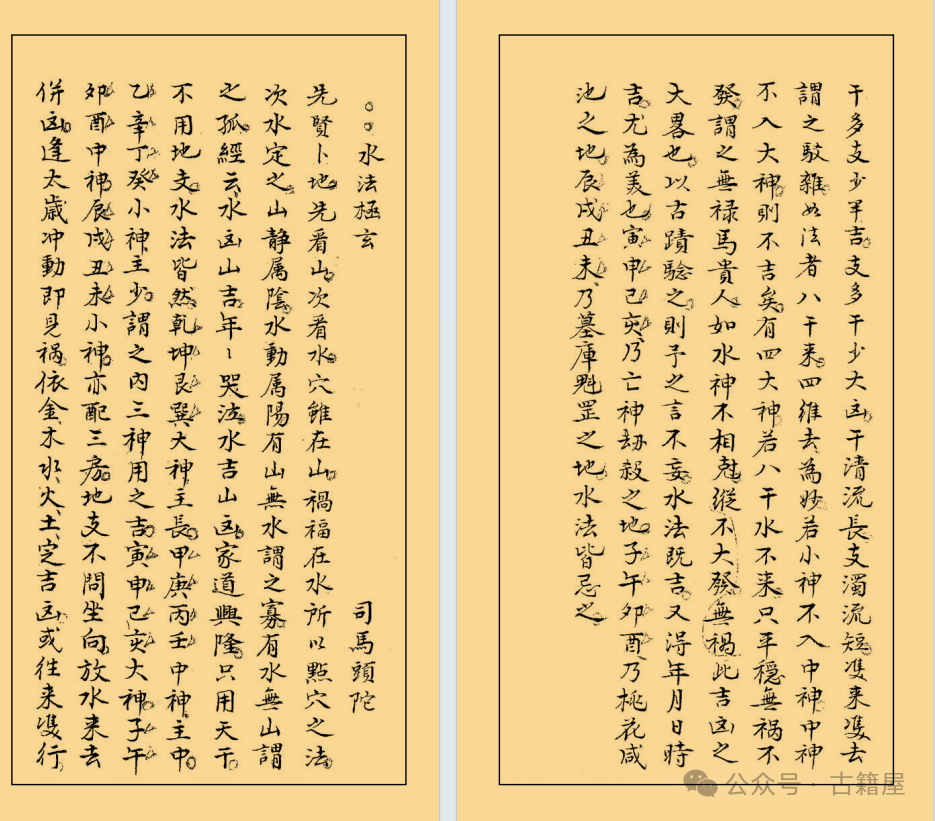 水法極玄 司馬頭陀
先賢卜地先看山次看水穴雖在山禍福在水所以點穴之法
次水定之山静属陰水動属陽有山無水謂之寡有水無山謂
之孤經云水凶山吉年〻哭泣水吉山凶家道興隆只用天干
不用地支水法皆然乾坤艮巽大神主長甲庚丙壬中神主中
乙辛丁癸小神主少謂之内三神用之吉寅申巳亥大神子午
夘酉中神辰戌丑未小神亦配三房地支不問坐向放水来去
併凶逢太歳冲動即見禍依金木水火土定吉凶或往来隻行
干多支少半吉支多干少大凶干清流長支濁流短隻来隻去
謂之駁雜如法者八干来四維去為妙若小神不入中神中神
不入大神則不吉矣有四大神若八干水不来只平穏無禍不
發謂之無禄馬貴人如水神不相尅縱不大發無禍此吉凶之
大畧也以古蹟驗之則予之言不妄水法既吉又得年月日時
吉尤為美也寅申巳亥乃亡神劫殺之地子午夘酉乃桃花咸
池之地辰戌丑未乃墓庫魁罡之地水法皆忌之
公众号·古籍屋